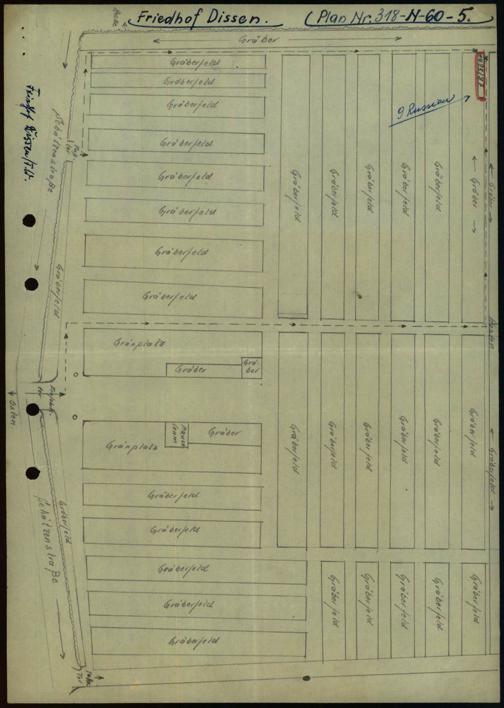 Friedhof Dissen. (Plan Nr. 318-H-60-5.
Gräber
Gräberfeld
Gräberfeld
Gräberfeld
9 Russian
Gräberfeld
Gräberfeld
Gräberfeld
Gräberfeld
Gräberfeld
Schützenstraße
Gräberfeld
Gräberfeld
Gräberfeld
Gräberfeld
Gräberfeld
Gräberfeld
Gräber
Gräber
Grünplatz
Gräber
Grä-
ber
Osten
Grünplatz
Gräber
Gräberfeld
Gräberfeld
Gräberfeld
Gräberfeld
Gräberfeld
Gräberfeld
Gräberfeld
Gräberfeld
Gräberfeld
Gräberfeld
Schützenstraße
Gräberfeld
Gräberfeld
Gräberfeld
Gräberfeld
Gräberfeld
Gräberfeld
Gräberfeld
Gräberfeld
Gräberfeld
Tor